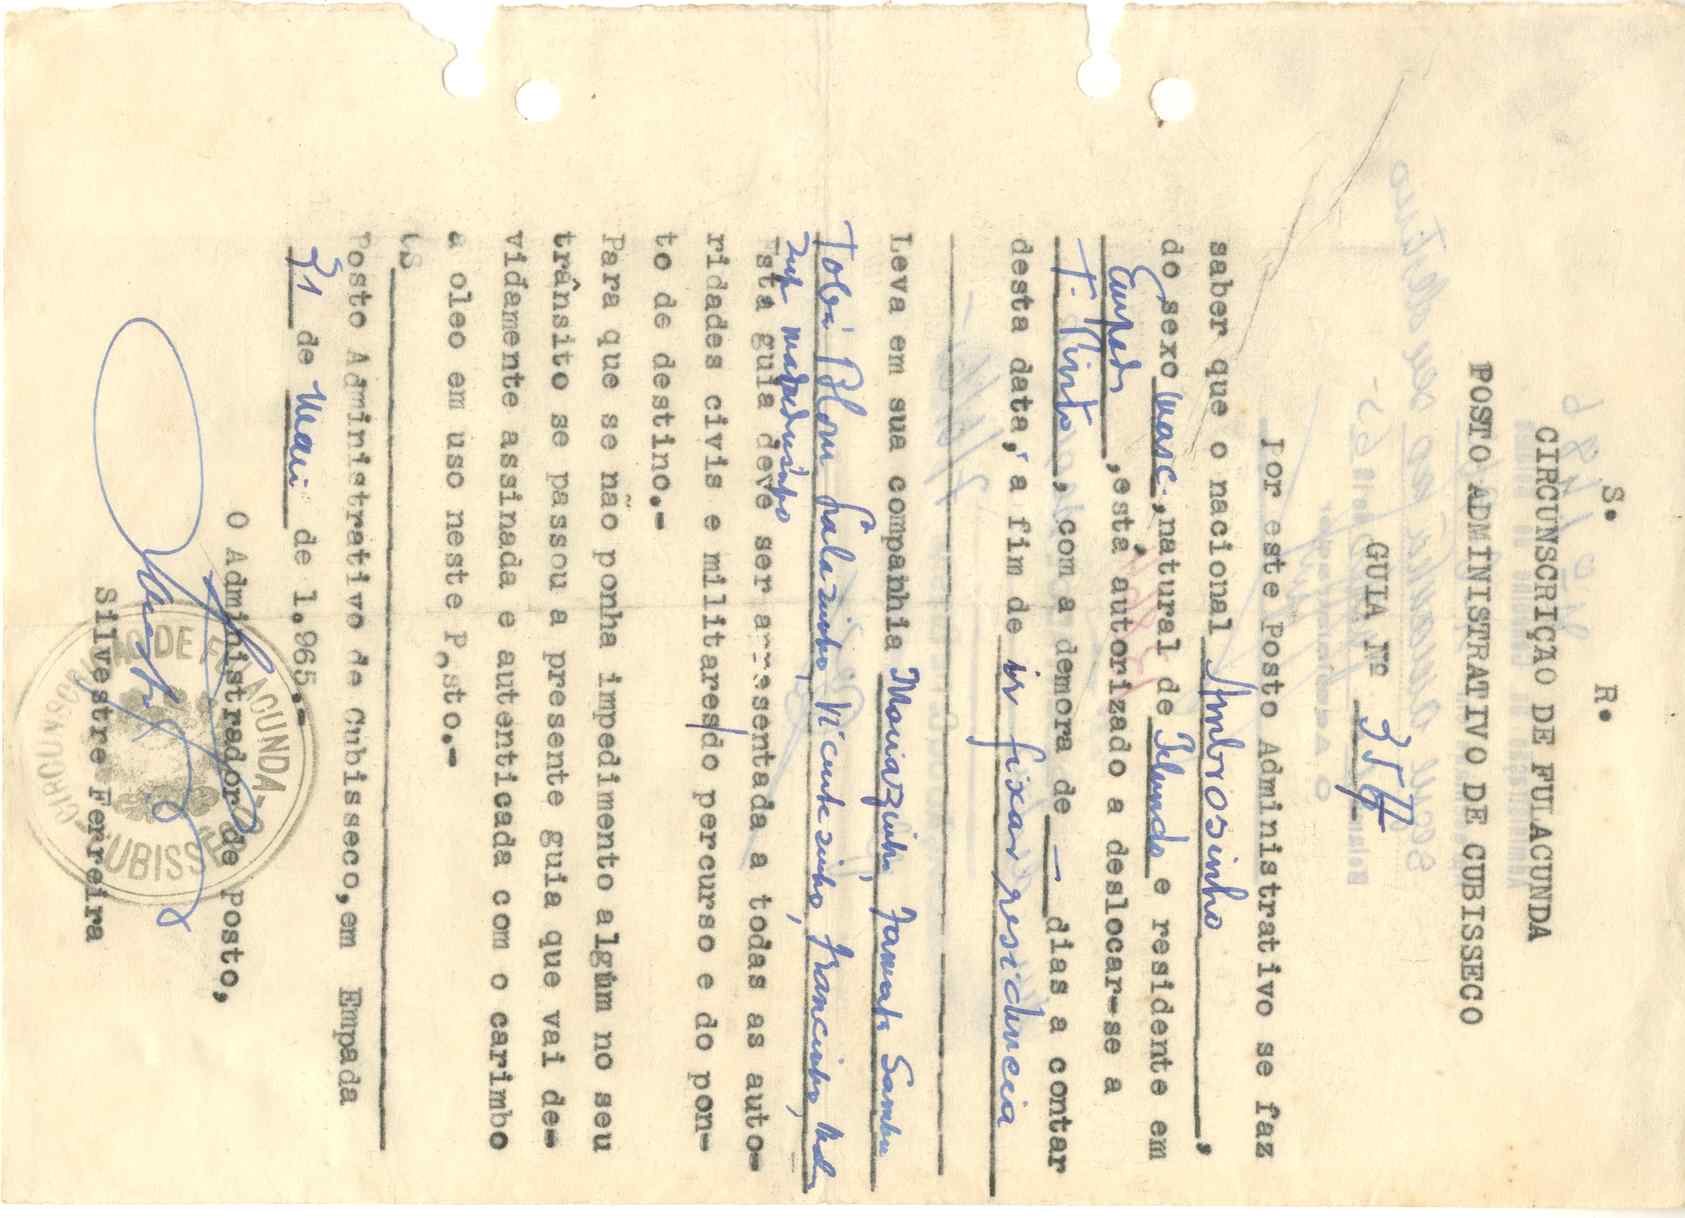 S. R.
CIRCUNSCRIÇÃO DE FULACUNDA
POSTO ADMINISTRATIVO DE CUBISSECO
GUIA Nº 357
Por este Posto Administrativo se faz
saber que o nacional Ambrosinho,
do sexo masc., natural de e residente em
Empada, está autorizado a deslocar-se a
T. Pinto, com a demora de — dias a contar
desta data, a fim de ir fixar residencia
Leva em sua companhia Mariazinha, Samba
Vicentesinho, Francinho,
Esta guia deve ser apresentada a todas as auto-
ridades civis e militares do percurso e do pon-
to de destino.-
Para que se não ponha impedimento algum no seu
trânsito se passou a presente guia que vai de-
vidamente assinada e autenticada com o carimbo
a oleo em uso neste Posto.-
Posto Administrativo de Cubisseco, em Empada
31 de Maio de 1.965.-
O Administrador de posto,
Silvestre Ferreira
CIRCUNSCRIÇÃO DE FULACUNDA
CUBISSECO